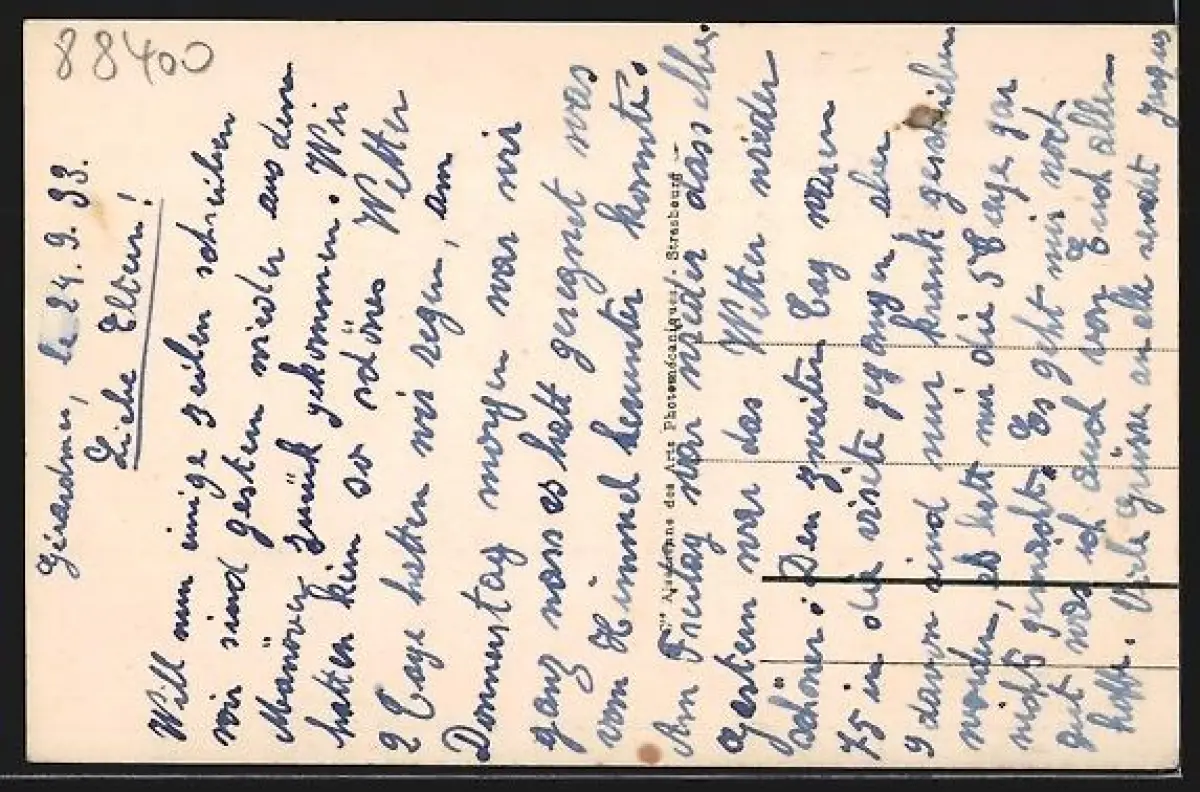 88400
Gérardmer, le 24. 9. 33.
Liebe Eltern!
Will nun einige zeilen schreiben
wir sind gestern wieder aus dem
Manöver zurük gekommen. Wir
hatten kein so schönes Wetter
2 Tage hatten wir regen, am
Donnerstag morgen war wir
ganz nass es hatt geregnet was
vom Himmel herunter konnte.
Am Freitag war wieder dasselbe.
Gestern war das Wetter wieder
schöner. Den zweiten Tag waren
75 in die visite gegangen aber
9 davon sind nur krank geschrieben
worden, es hatt mir die 5 Tage gar
nichts gemacht. Es geht mir noch
gut was ich auch von Euch allen
hoffe. Viele Grüsse an alle
"Ajax", Des Arts Photomécaniques, Strasbourg